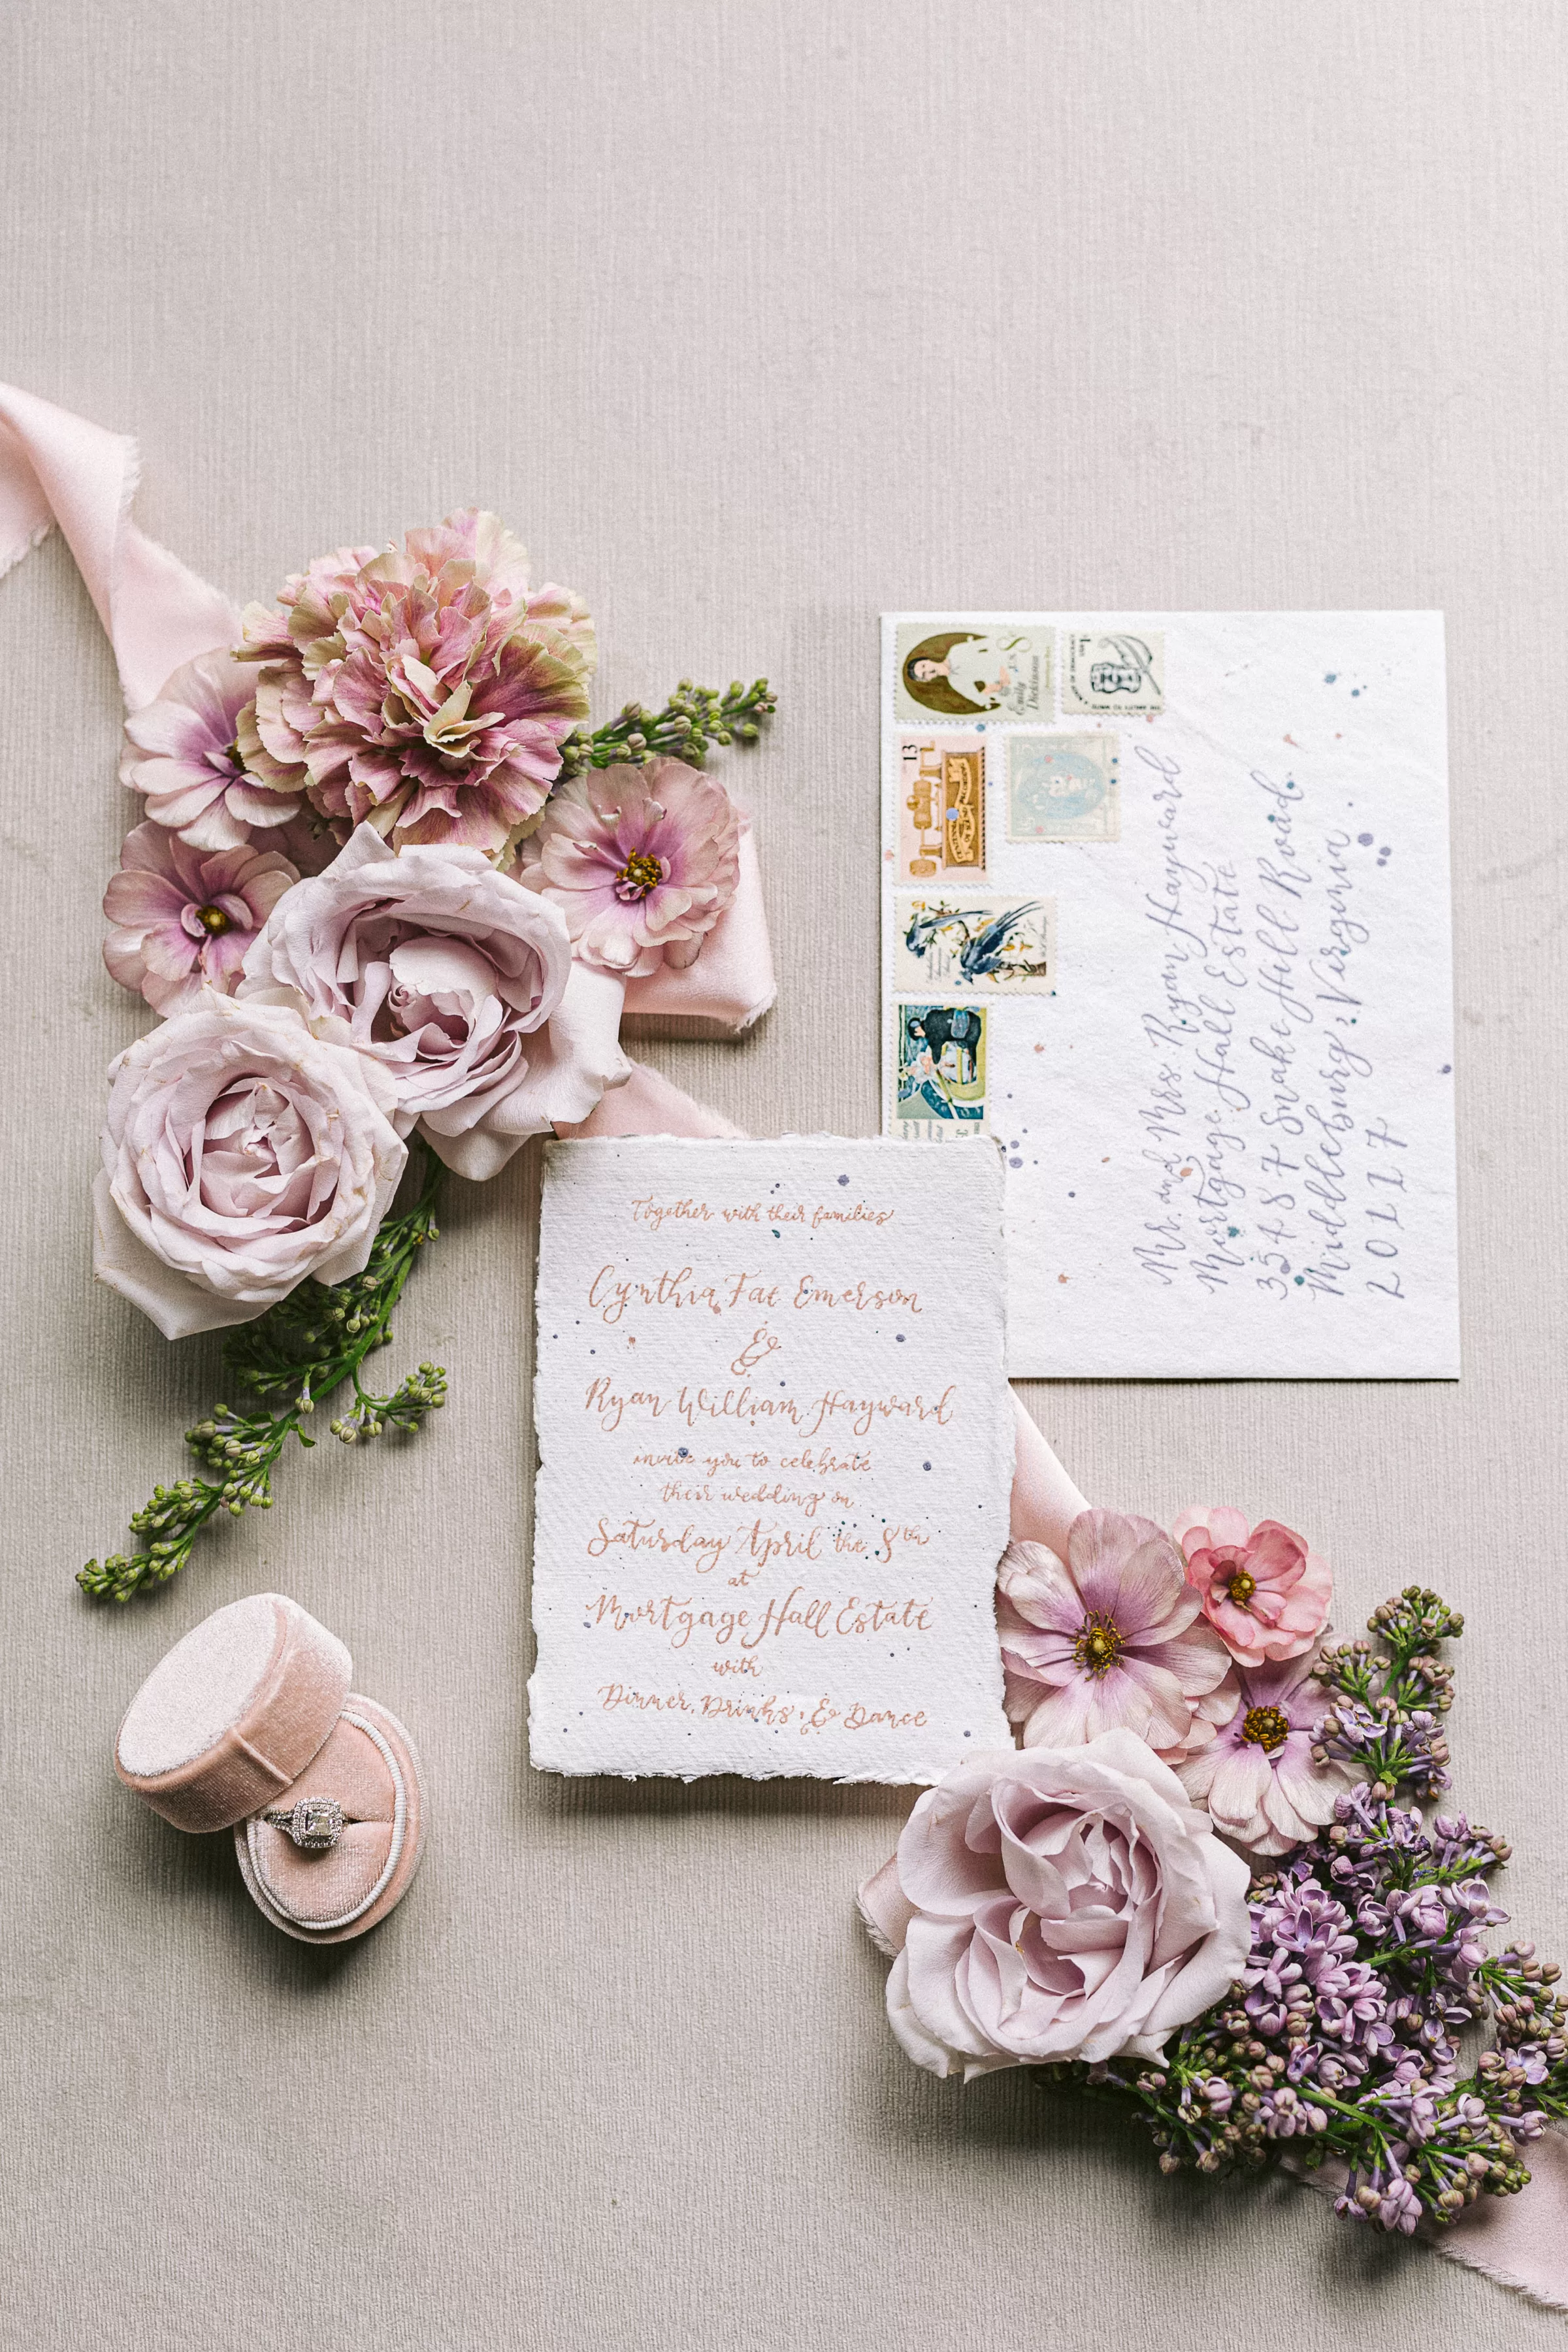 Together with their families
Cynthia Fae Emerson
&
Ryan William Hayward
invite you to celebrate
their wedding on
Saturday April the 8th
at
Mortgage Hall Estate
with
Dinner, Drinks, & Dance
Mr. and Mrs. Ryan Hayward
Mortgage Hall Estate
35487 Snake Hill Road
Middleburg, Virginia
20117
Emily
Dickinson
8
U.S.
1c
13